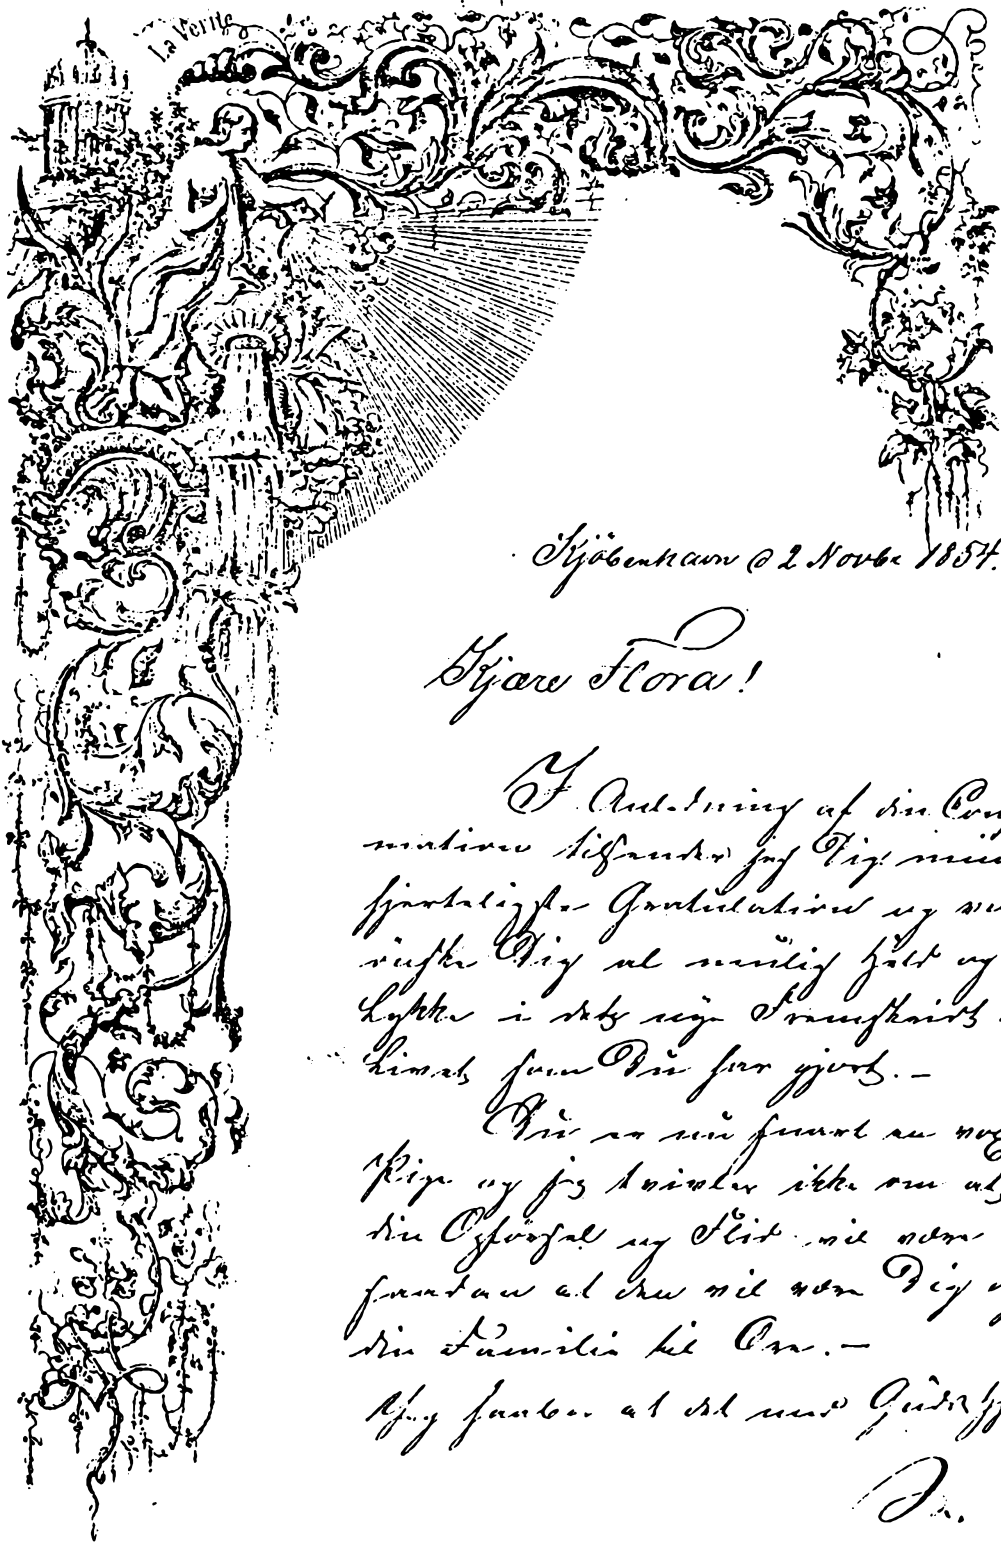 La Verite
Kjöbenhavn d 2 Novbr 1854.
Kjære Flora!
I Anledning af din Con
mation tilsender jeg Dig min
hjerteligste Gratulation og
önske Dig al muelig Held og
Lykke i dets nye Fremskridt
Livet som Du har gjort. —
Du er nu snart en vox
Pige og jeg tvivler ikke om at
din Opförsel og Flid vil være
saadan at den vil være Dig
din Familie til Ære. —
Jeg haaber at det med Guds